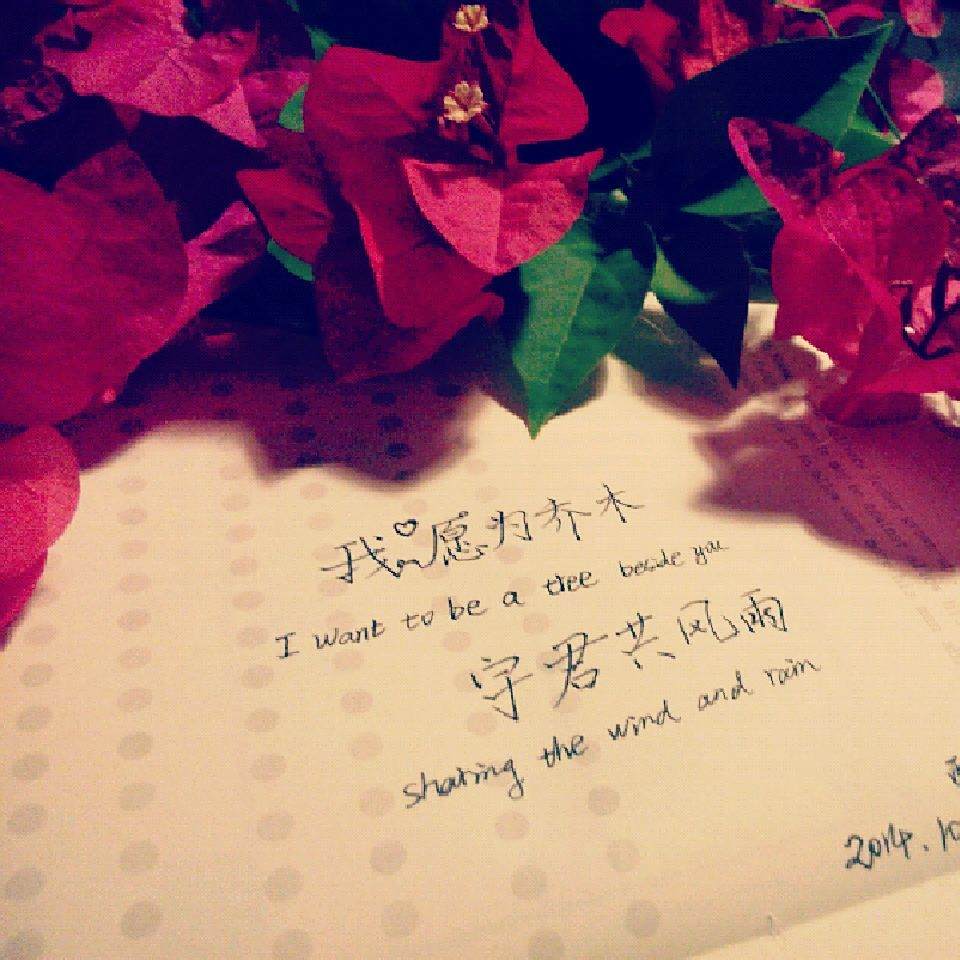 我愿为乔木
I want to be a tree beside you
守君共风雨
sharing the wind and rain
2014.10